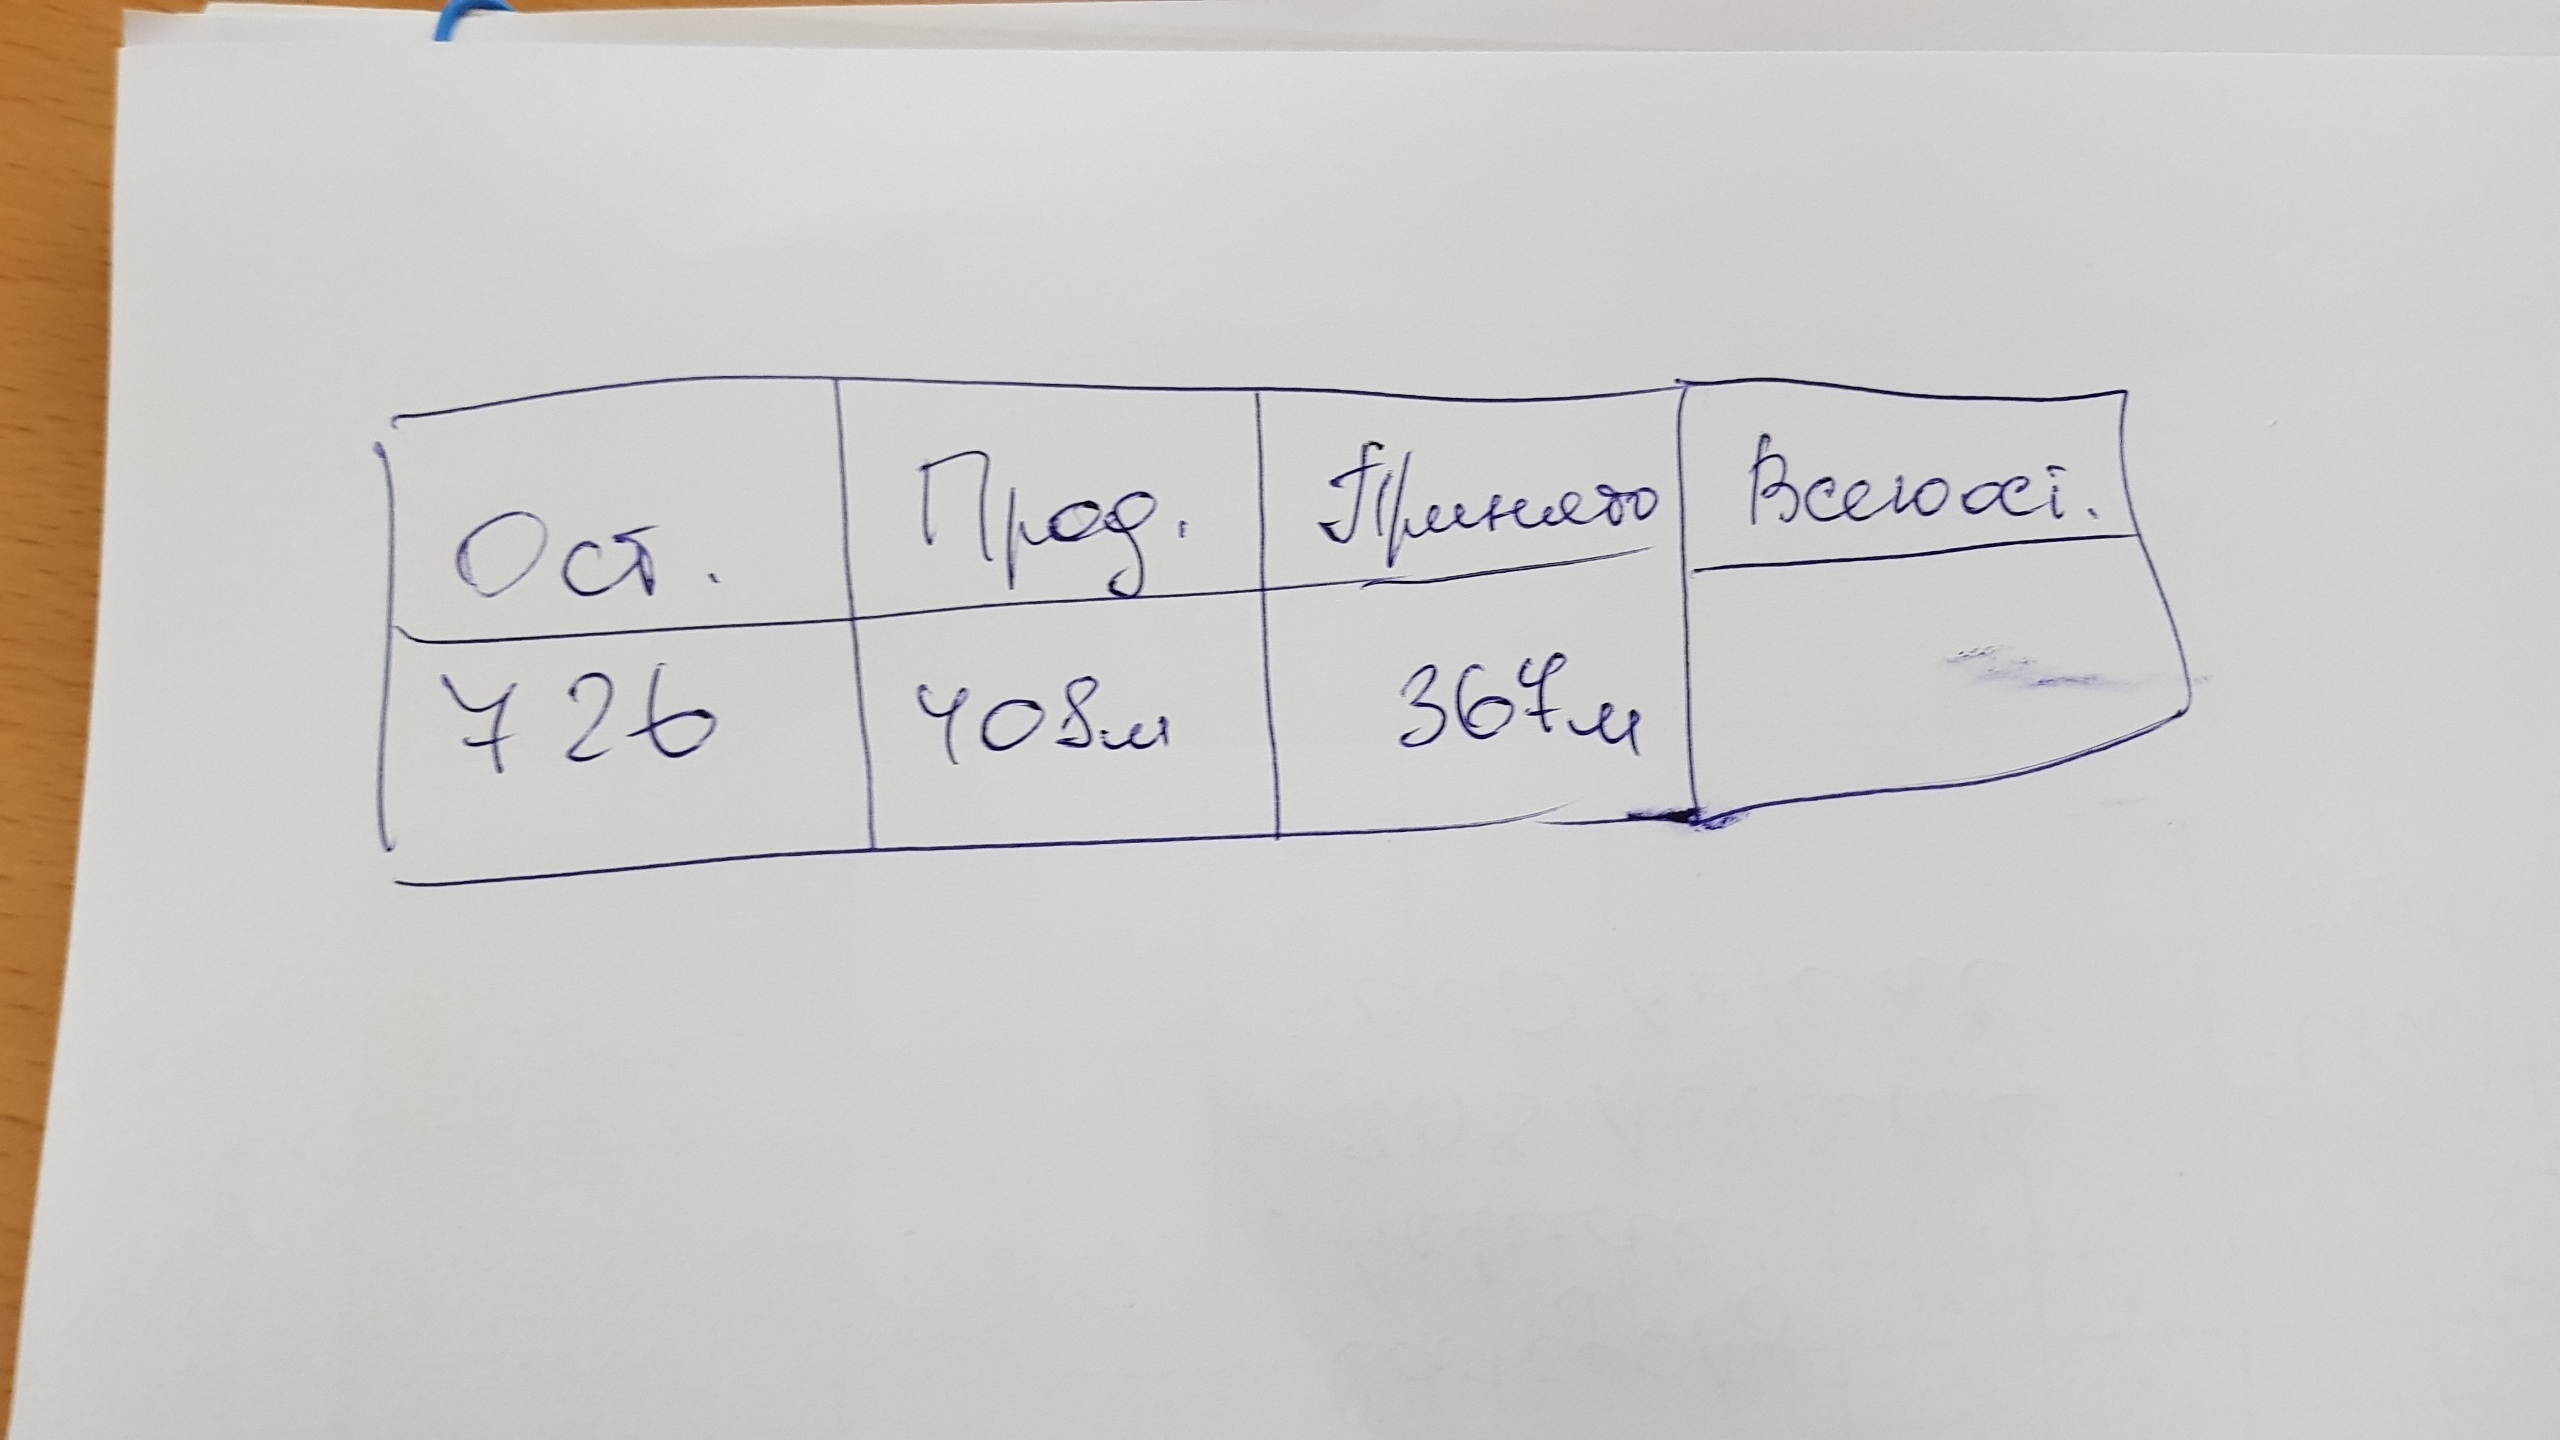 Ост. Прод. Принято Всего ост.
726 408м 367м